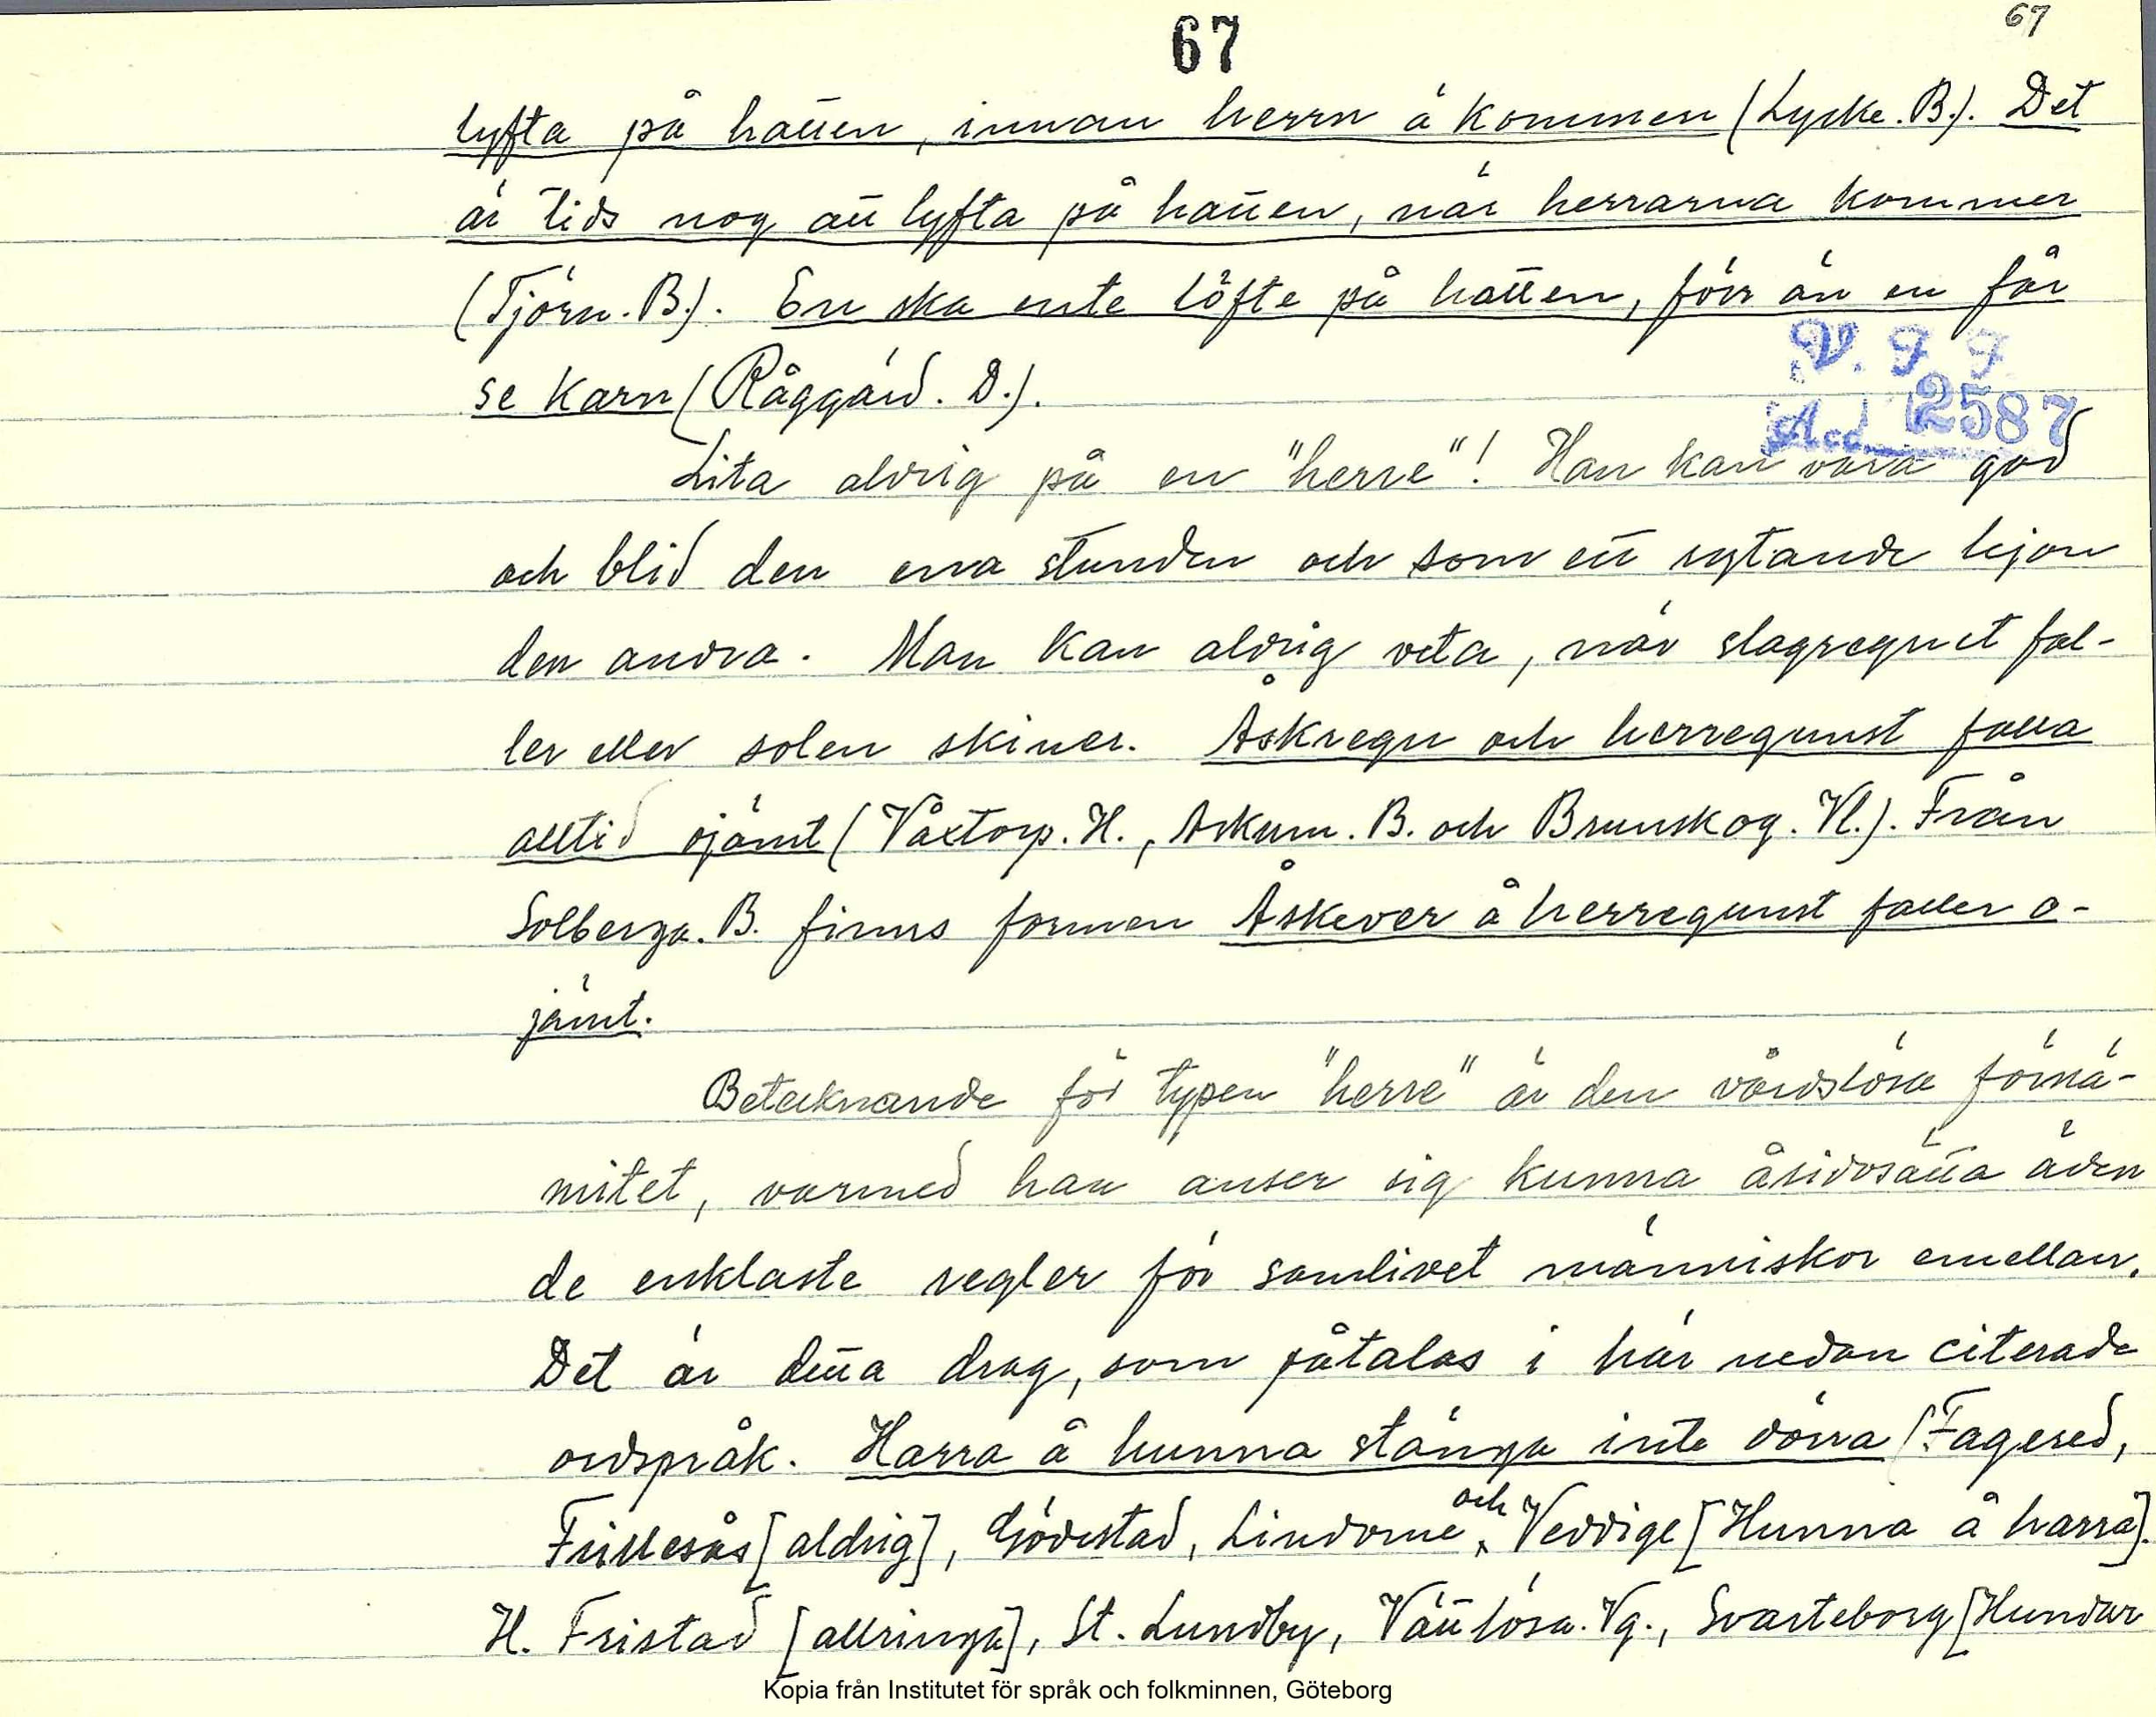 67
67
lyfta på hatten, innan herrn ä kommen (Lycke. B.). Det
är tids nog att lyfta på hatten, när herrarna kommer
(Tjörn. B.). En ska ente löfte på hatten, förr än en får
se karn (Råggärd. D.).
V. F. F
Acc. 2587
Lita aldrig på en "herre"! Han kan vara god
och blid den ena stunden och som ett rytande lejon
den andra. Man kan aldrig veta, när slagregnet fal-
ler eller solen skiner. Åskregn och herregunst falla
alltid ojämt (Våxtorp. H., Askum. B. och Brunskog. Vl.). Från
Solberga. B. finns formen Åskever å herregunst faller o-
jämt.
Betecknande för typen "herre" är den vårdslösa förnä-
mitet, varmed han anser sig kunna åsidosätta även
de enklaste regler för samlivet människor emellan.
Det är detta drag, som påtalas i här nedan citerade
ordspråk. Harra å hunna stänga inte dörra (Fagered,
Frillesås [aldrig], Gödestad, Lindome och Veddige [Hunna å harra].
H. Fristad [allringa], St. Lundby, Vättlösa. Vg., Svarteborg [Hundar
Kopia från Institutet för språk och folkminnen, Göteborg